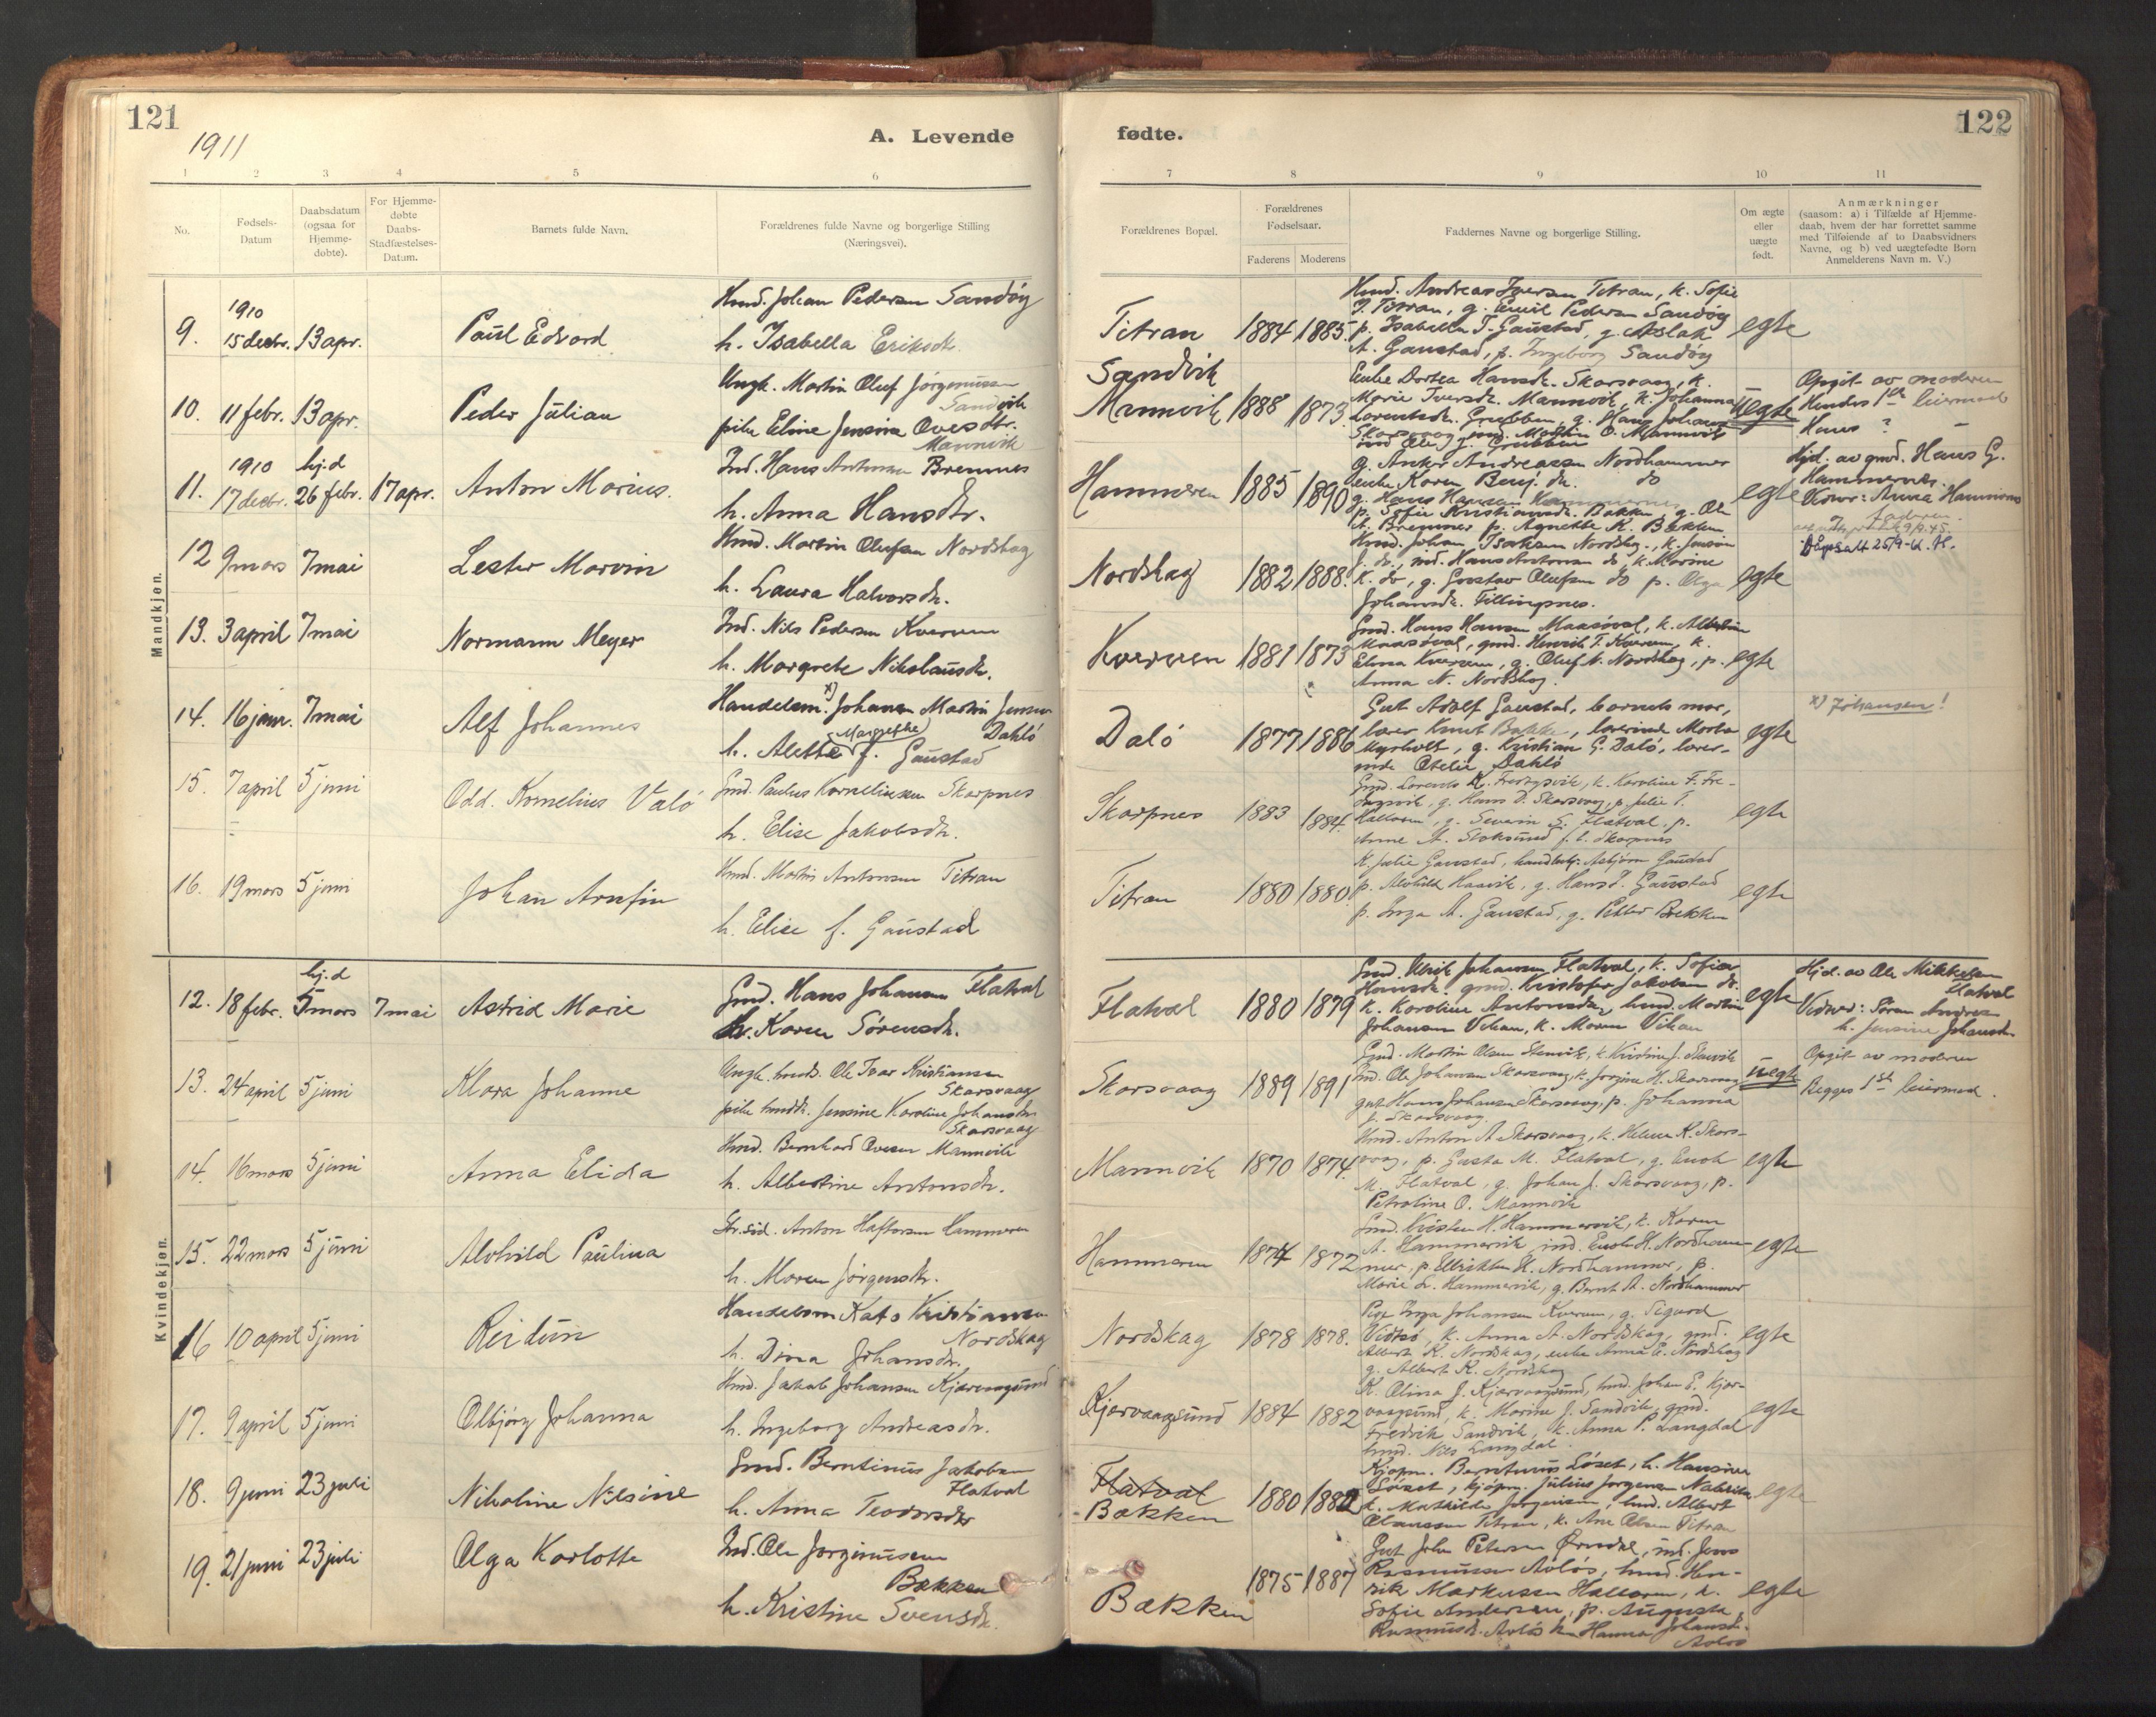 121
1911
A. Levende
1 2 3 4 5 6
No.
Fødsels-
Datum
Daabsdatum
(ogsaa for
Hjemme-
døbte).
For Hjemme-
døbte
Daabs-
Stadfæstelses-
Datum.
Barnets fulde Navn.
Forældrenes fulde Navne og borgerlige Stilling
(Næringsvei).
Mandkjøn.
9. 1910
15 decbr. 13 apr. Paul Edvard
Hmd. Johan Pedersen Sandöy
h. Isabella Eriksdr.
10. 11 febr. 13 apr. Peder Julian
Ungk. Martin Oluf Jörginussen
Sandvik
pike Eline Jensina Ovesdtr.
Mannvik
11. 1910 hj.d
17 decbr. 26 febr. 17 apr. Anton Marius.
Ind. Hans Antonsen Bremnes
h. Anna Hansdtr.
12 9 mars 7 mai Lester Marvin
Hmd. Martin Olufsen Nordskag
h. Laura Halvorsdr.
13. 3 april 7 mai Normann Meyer
Ind. Nils Pedersen Kverven
h. Margrete Nikolausdr.
14. 16 jan. 7 mai Alf Johannes
Handelsm. x) Johanes Martin Jensen
Dahlö
Margrethe
h. Alette f. Gaustad
15. 7 april 5 juni Odd. Kornelius Valö
Gmd. Paulus Korneliussen Skarpnes
h. Elise Jakobsdr.
16. 19 mars 5 juni Johan Arnfin
Hmd. Martin Antonsen Titran
h. Elise f. Gaustad
Kvindekjøn.
12. 18 febr. hj.d
5 mars 7 mai Astrid Marie
Gmd. Hans Johansen Flatval
h. Karen Sörensdr.
13. 24 april 5 juni Klara Johanne
Ungk. hmds. Ole Ivar Kristiansen
Skarsvaag
pike hmddr. Jensine Karoline Johansdr.
Skarsvaag
14. 16 mars 5 juni Anna Elida
Hmd. Bernhard Ovesen Mannvik
h. Albertine Antonsdr.
15. 22 mars 5 juni Alvhild Paulina
Str.sid. Anton Haftorsen Hammeren
h. Maren Jörgensdr.
16 10 april 5 juni Reidun
Handelsm Kato Kristiansen
Nordskag
h. Dina Johansdr.
17. 9 april 5 juni Olbjörg Johanna
Hmd. Jakob Johansen Kjervaagsund
h. Ingeborg Andreasdr.
18. 9 juni 23 juli Nikoline Nilsine
Gmd. Berntinus Jakobsen
Flatval
h. Anna Teodorsdtr
19. 21 juni 23 juli Olga Karlotte
Ind. Ole Jorginussen
Bækken
h. Kristine Svensdr.
122
fødte.
7 8 9 10 11
Forældrenes Bopæl.
Forældrenes
Fødselsaar.
Faderens Moderens
Faddernes Navne og borgerlige Stilling.
Om ægte
eller
uægte
født.
Anmærkninger
(saasom: a) i Tilfælde af Hjemme-
daab, hvem der har forrettet samme
med Tilføiende af to Daabsvidners
Navne, og b) ved uægtefødte Børn
Anmelderens Navn m. V.)
Titran 1884 1885.
Hmd. Andreas Iversen Titran, k. Sofie
J. Titran, g. Emil Pedersen Sandöy
p. Isabella T. Gaustad, g. Aslak
A. Gaustad, p. Ingeborg Sandöy
egte
Sandvik
Mannvik 1888 1873.
Enke Dortea Hansdr. Skarsvaag, k.
Marie Iversdr. Mannvik, k. Johanna
Lorentsdr. Grubben, g. Hans Johansen
uegte
Opgit av moderen
Hendes 1ste leiermaal
Hans ? –
Hammeren 1885 1890
g. Anker Andreassen Nordhammer
enke Karen Benj.dr. do
g. Hans Hansen Hammervik
p. Sofie Kristiansdr. Bakken, g. Ole
A. Bremnes p. Agnethe K. Bækken
egte
Hjd. av gmd. Hans G.
Hammervik.
faderen.
Dåpsatt 25/9-61. H.
Nordskag 1882 1888.
Hmd. Johan Isaksen Nordskag, k. Jensine
J. do, ind. Hans Antonsen do, k. Marine
K. do, g. Gustav Olufsen do p. Olga
Johansdr. Fillingsnes.
egte
Kverven 1881 1873
Gmd. Hans Hansen Maasöval, k. Albertine
Maasöval, gmd. Henrik T. Kverven, k.
Elina Kverven, g. Oluf N. Nordskag, p.
Anna N. Nordskag.
egte
Dalö 1877 1886
Gut Adolf Gaustad, barnets mor,
lærer Knut Bakke, lærerinde Marta
Myrholt, g. Kristian G. Dalö, lærer-
inde Otelie Dahlö
egte
x) Johansen!
Skarpnes 1883 1884.
Gmd. Lorents K. Fredagsvik, k. Karoline F. Fre-
dagsvik, g. Hans D. Skarsvaag, p. Julie T.
Hallaren, g. Severin S. Flatval, p.
Anne A. Stoksund f. t. Skarpnes
egte
Titran 1880 1880.
K. Julie Gaustad, handlbtj. Asbjörn Gaustad
p. Alvhild Haavik, g. Hans T. Gaustad
p. Inga A. Gaustad, g. Petter Bækken
egte
Flatval 1880 1879
Gmd. Ulrik Johansen Flatval, k. Sofie
Hansdr. gmd. Kristofer Jakobsen do.
k. Karoline Antonsdr, hmd. Martin
Johansen Vikan, k. Maren Vikan
egte
Hjd. av Ole Mikkelsen
Flatval
Vidner: Sören Andres
h. Jensine Johansdr.
Skarsvaag 1889 1891
Gmd. Martin Olsen Stenvik, k. Kristine J. Stenvik
Ind. Ole Johansen Skarsvaag, k. Jorgine H. Skarsvaag
gut Hans Johansen Skarsvaag, p. Johanna
J. Skarsvaag
uegte
Opgit av moderen
Begges 1ste leiermaal.
Mannvik 1870 1874.
Hmd. Anton A. Skarsvaag, k. Helene K. Skars-
vaag, p. Gusta M. Flatval, g. Enok
M. Flatval, g. Johan J. Skarsvaag, p.
Petroline O. Mannvik
egte
Hammeren 1874 1872
Gmd. Kristen H. Hammervik, k. Karen
A. Hammervik ind. Enok H. Nordham-
mer, p. Ellrikken H. Nordhammer, p.
Marie L. Hammervik, g. Bernt A. Nordhammer
egte
Nordskag 1878 1878.
Pige Inga Johansen Kverven, g. Sigurd
Vidtsö, k. Anna A. Nordskag, gmd.
Albert K. Nordskag, enke Anna E. Nordskag
g. Albert K. Nordskag
egte
Kjervaagsund 1884 1882
K. Olina J. Kjervaagsund, hmd. Johan E. Kjer-
vaagsund, k. Marine J. Sandvik, gmd.
Fredrik Sandvik, k. Anna P. Langdal
hmd. Nils Langdal.
egte
Flatval
Bækken 1880 1882
Kjøpm. Berntinus Löset, h. Hansine
Löset, kjöpm. Julius Jorgensen
k. Mathilde Jorgensen, hmd. Albert
Olaussen Titran, k. Ane Olsen Titran
egte
Bækken 1875 1887
Gut John Petersen Ørndal, ind. Jens
Rasmussen Avlös, hmd. Hen-
rik Markussen Hallaren, k.
Sofie Andersen, p. Augusta
Rasmusdr. Avlös k. Hanna Johansdr.
Avlös
egte